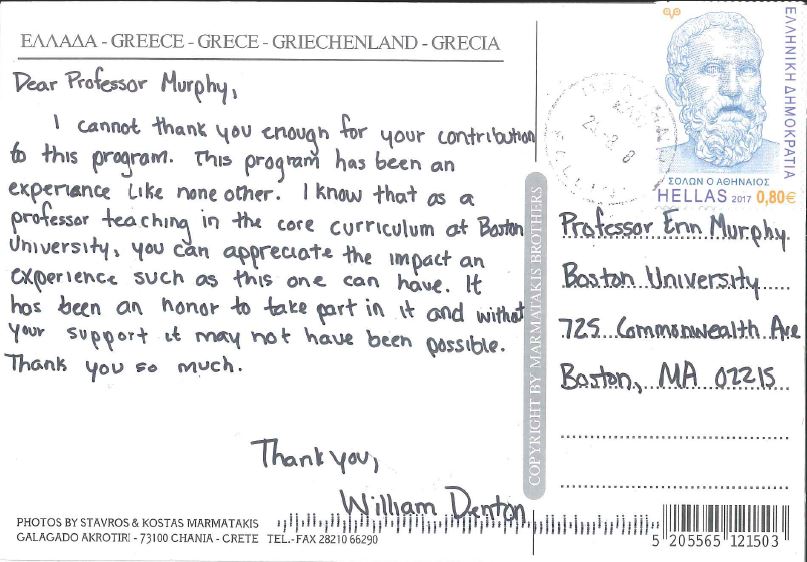 ΕΛΛΑΔΑ - GREECE - GRECE - GRIECHENLAND - GRECIA
Dear Professor Murphy,
I cannot thank you enough for your contribution
to this program. This program has been an
experience like none other. I know that as a
professor teaching in the core curriculum at Boston
University, you can appreciate the impact an
experience such as this one can have. It
has been an honor to take part in it and without
your support it may not have been possible.
Thank you so much.
Thank you,
William Denton
PHOTOS BY STAVROS & KOSTAS MARMATAKIS
GALAGADO AKROTIRI - 73100 CHANIA - CRETE TEL.-FAX 28210 66290
COPYRIGHT BY MARMATAKIS BROTHERS
ΕΛΛΗΝΙΚΗ ΔΗΜΟΚΡΑΤΙΑ
ΣΟΛΩΝ Ο ΑΘΗΝΑΙΟΣ
HELLAS 2017 0,80€
Professor Erin Murphy
Boston University
725 Commonwealth Ave
Boston, MA 02215
5 205565 121503